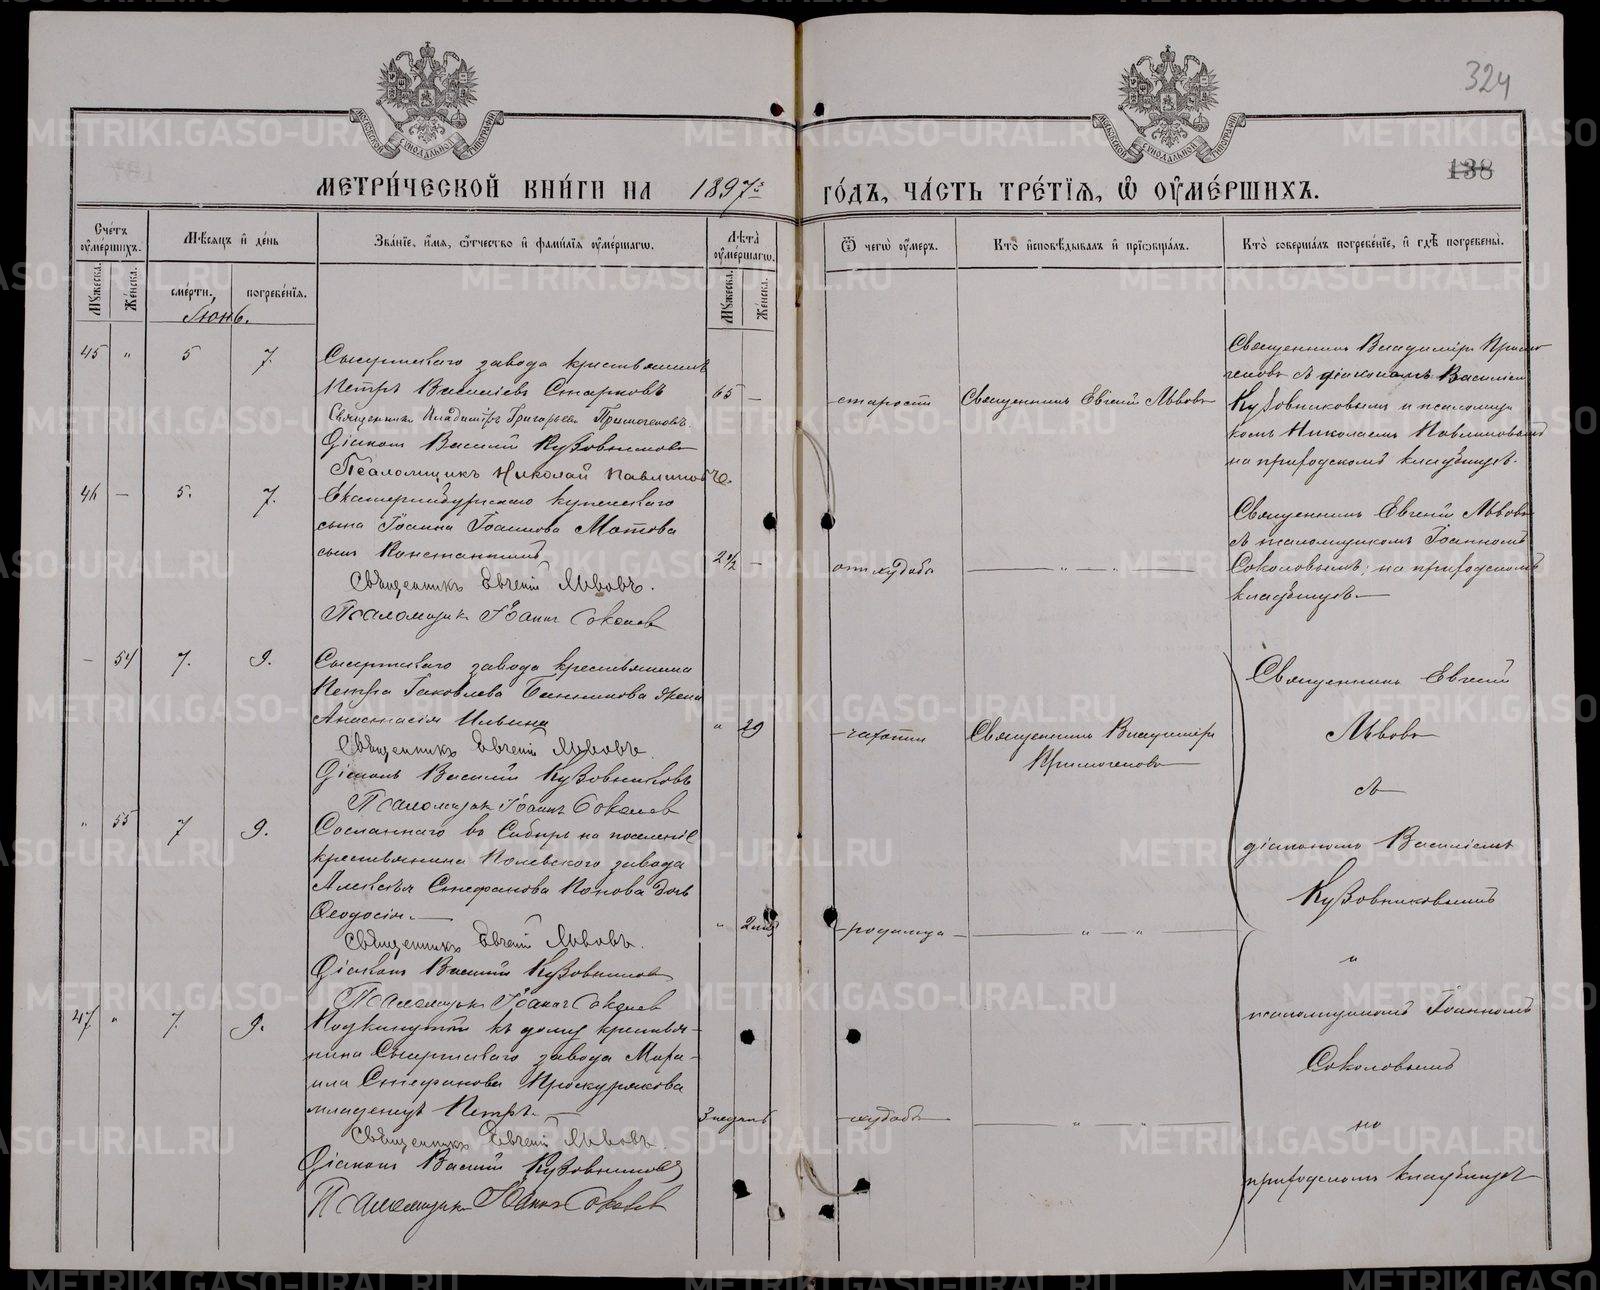 324
138
МЕТРИЧЕСКОЙ КНИГИ НА 1897 г. ГОДЪ, ЧАСТЬ ТРЕТІЯ, Ѿ ОУМЕРШИХЪ.
Счетъ оумершихъ.
Мѣсяцъ и день
Званіе, имя, отчество и фамилія оумершагѡ.
Лѣта оумершагѡ.
Ѿ чегѡ оумеръ.
Кто исповѣдывалъ и пріобщалъ.
Кто совершалъ погребеніе, и гдѣ погребены.
Мужеска.
Женска.
смерти.
погребенія.
Мужеска.
Женска.
Іюнь.
45 " 5 7.
Сысертскаго завода крестьянинъ
Петръ Василіевъ Старковъ 65 —
старости
Священникъ Евгеній Львовъ
Священникъ Владиміръ Примо-
геновъ съ діакономъ Василіемъ
Кузовниковымъ и псаломщи
комъ Николаемъ Павлиновымъ
на приходскомъ кладбищѣ.
Священникъ Владиміръ Григорьевъ Примогеновъ.
Діаконъ Василій Кузовниковъ
Псаломщикъ Николай Павлиновъ
46 — 5. 7.
Екатеринбургскаго купеческаго
сына Іоанна Іоаннова Мотова
сынъ Константинъ 2 1/2 —
отъ худобы
— " — " —
Священникъ Евгеній Львовъ
съ псаломщикомъ Іоанномъ
Соколовымъ; на приходскомъ
кладбищѣ.
Священникъ Евгеній Львовъ.
Псаломщикъ Іоаннъ Соколовъ
— 54 7. 9.
Сысертскаго завода крестьянина
Петра Іаковлева Банникова жена
Анастасія Ильина " 29
чахотки
Священникъ Владиміръ
Примогеновъ
Священникъ Евгеній
Львовъ
съ
діакономъ Василіемъ
Кузовниковымъ
и
псаломщикомъ Іоанномъ
Соколовымъ
на
приходскомъ кладбищѣ
Священникъ Евгеній Львовъ
Діаконъ Василій Кузовниковъ
Псаломщикъ Іоаннъ Соколовъ
" 55 7 9.
Сосланнаго въ Сибирь на поселеніе
крестьянина Полевского завода
Алексѣя Стефанова Попова дочь
Ѳеодосія. "
родимца
— " — " —
Священникъ Евгеній Львовъ.
Діаконъ Василій Кузовниковъ
Псаломщикъ Іоаннъ Соколовъ
47 " 7. 9.
Подкинутый къ дому крестья-
нина Сысертскаго завода Миха-
ила Стефанова Проскурякова
младенецъ Петръ. 3 недѣль
худобы
— " — " —
Священникъ Евгеній Львовъ.
Діаконъ Василій Кузовниковъ
Псаломщикъ Іоаннъ Соколовъ
METRIKI.GASO-URAL.RU